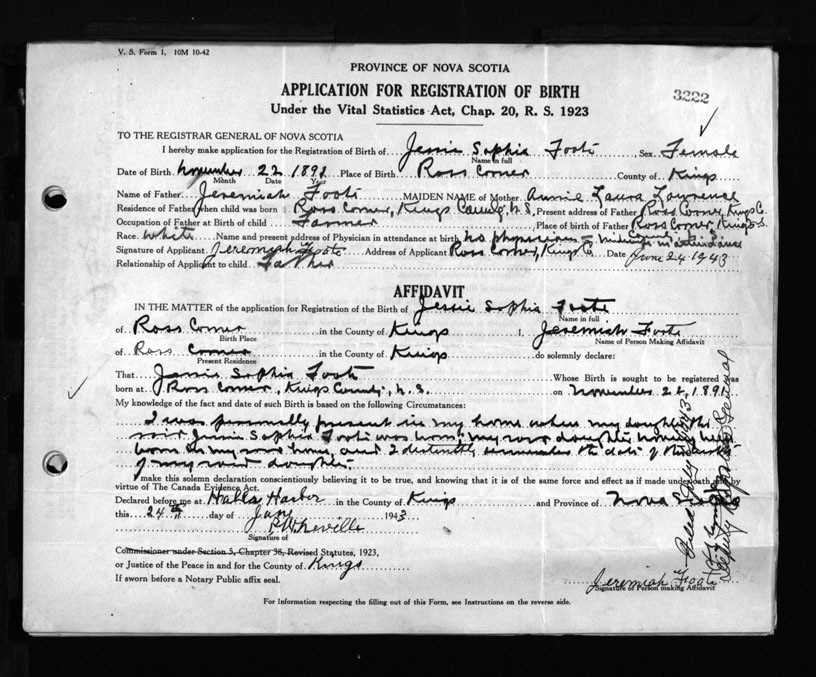 V. S. Form 1. 10M 10-42
PROVINCE OF NOVA SCOTIA
APPLICATION FOR REGISTRATION OF BIRTH
3222
Under the Vital Statistics Act, Chap. 20, R. S. 1923
TO THE REGISTRAR GENERAL OF NOVA SCOTIA
I hereby make application for the Registration of Birth of Jessie Sophia Foote Sex Female
Name in full
Date of Birth November 22 1891 Place of Birth Ross Corner County of Kings
Month Date Year
Name of Father Jeremiah Foote MAIDEN NAME of Mother Annie Laura Lawrence
Residence of Father when child was born Ross Corner, Kings County, N.S. Present address of Father Ross Corner, Kings Co.
Occupation of Father at Birth of child Farmer Place of birth of Father Ross Corner, Kings
Race White Name and present address of Physician in attendance at birth No physician in attendance
Signature of Applicant Jeremiah Foote Address of Applicant Ross Corner, Kings Co. Date June 24 1943
Relationship of Applicant to child Father
AFFIDAVIT
IN THE MATTER of the application for Registration of the Birth of Jessie Sophia Foote
Name in full
of Ross Corner in the County of Kings I, Jeremiah Foote
Birth Place Name of Person Making Affidavit
of Ross Corner in the County of Kings do solemnly declare:
Present Residence
That Jessie Sophia Foote Whose Birth is sought to be registered was
born at Ross Corner, Kings County, N.S. on November 22, 1891
My knowledge of the fact and date of such Birth is based on the following Circumstances:
I was personally present in my home when my daughter the
said Jessie Sophia Foote was born, my said daughter having been
born in my own home, and I distinctly remember the date of the birth
of my said daughter.
make this solemn declaration conscientiously believing it to be true, and knowing that it is of the same force and effect as if made under oath and by
virtue of The Canada Evidence Act.
Declared before me at Halls Harbor in the County of Kings and Province of Nova Scotia
this 24th day of June 1943
Signature of
Commissioner under Section 5, Chapter 38, Revised Statutes, 1923,
or Justice of the Peace in and for the County of Kings
If sworn before a Notary Public affix seal.
Jeremiah Foote
Signature of Person making Affidavit
For Information respecting the filling out of this Form, see Instructions on the reverse side.
Deputy Registrar General